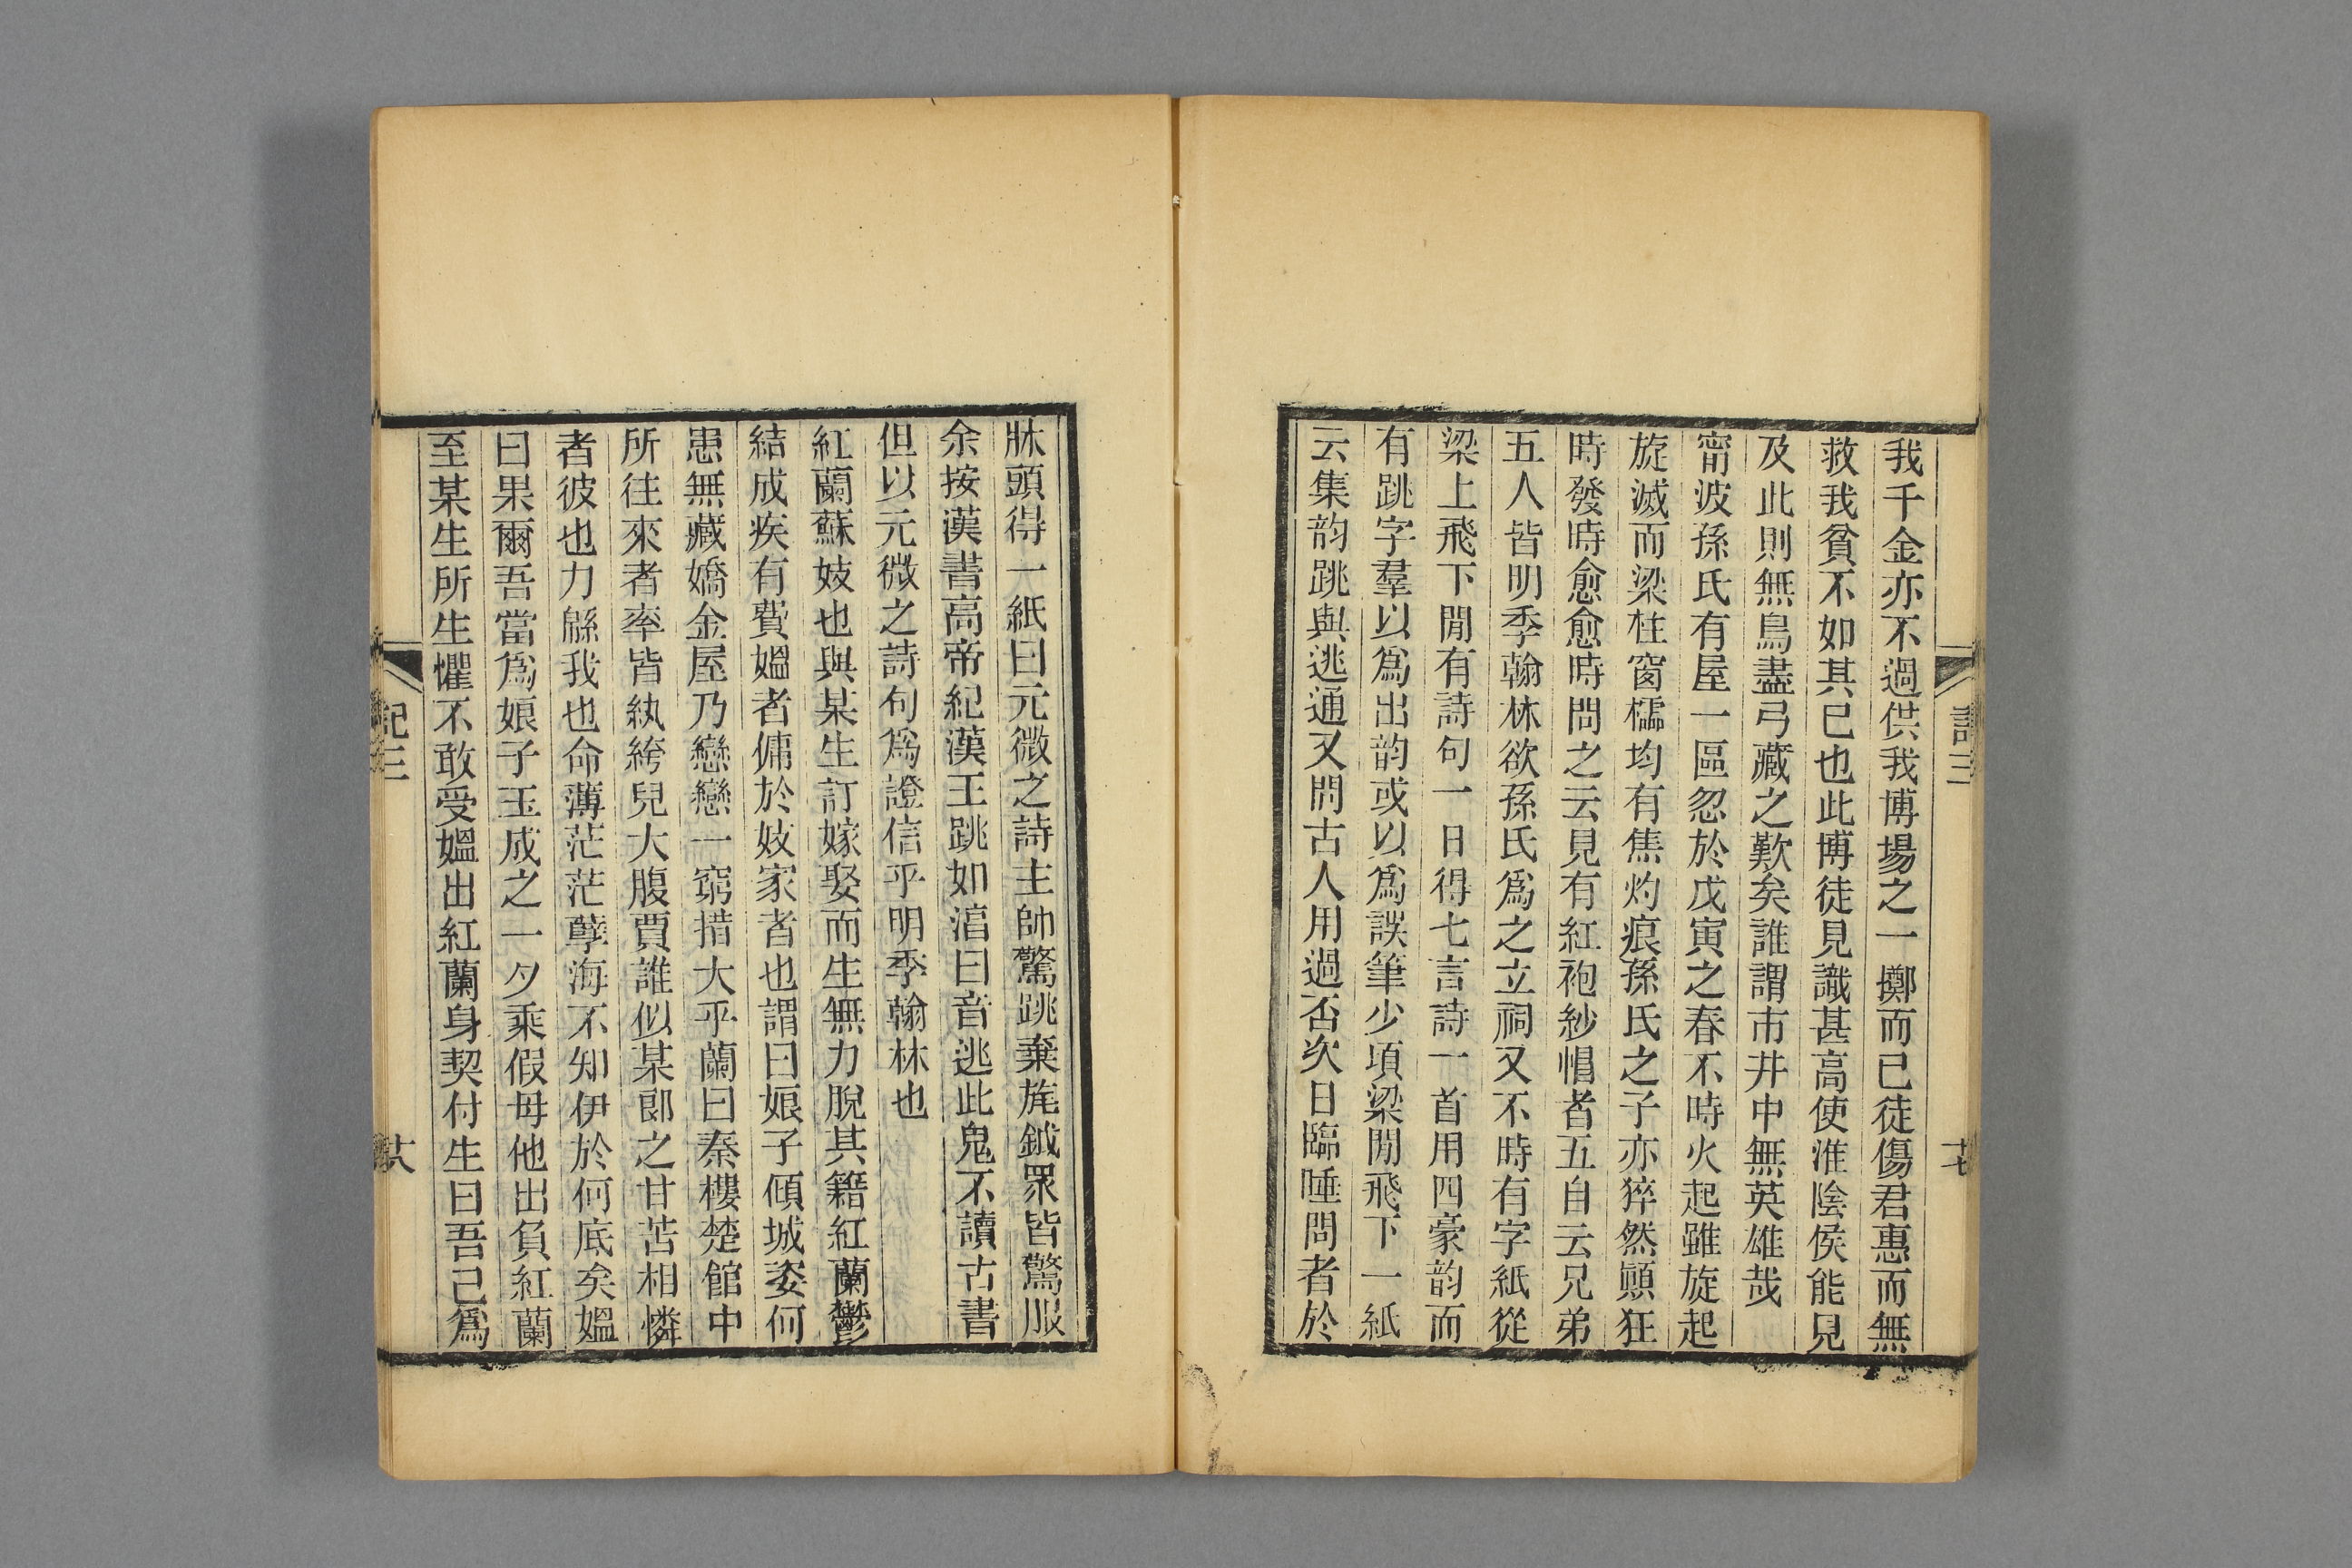 我千金亦不過供我博場之一擲而已徒傷君惠而無
救我貧不如其已也此博徒見識甚高使淮陰侯能見
及此則無鳥盡弓藏之歎矣誰謂市井中無英雄哉
甯波孫氏有屋一區忽於戊寅之春不時火起雖旋起
旋滅而梁柱窗櫺均有焦灼痕孫氏之子亦猝然顚狂
時發時愈愈時問之云見有紅袍紗帽者五自云兄弟
五人皆明季翰林欲孫氏爲之立祠又不時有字紙從
梁上飛下閒有詩句一日得七言詩一首用四豪韵而
有跳字羣以爲出韵或以爲誤筆少項梁閒飛下一紙
云集韵跳與逃通又問古人用過否次日臨睡問者於
牀頭得一紙曰元微之詩主帥驚跳棄旄鉞眾皆驚服
余按漢書高帝紀漢王跳如湻曰音逃此鬼不讀古書
但以元微之詩句爲證信乎明季翰林也
紅蘭蘇妓也與某生訂嫁娶而生無力脫其籍紅蘭鬱
結成疾有費媼者傭於妓家者也謂曰娘子傾城姿何
患無藏嬌金屋乃戀戀一窮措大乎蘭曰秦樓楚館中
所往來者率皆紈絝兒大腹賈誰似某郎之甘苦相憐
者彼也力緜我也命薄茫茫孽海不知伊於何底矣媼
曰果爾吾當爲娘子玉成之一夕乘假母他出負紅蘭
至某生所生懼不敢受媼出紅蘭身契付生曰吾已爲
記三
十八
十七